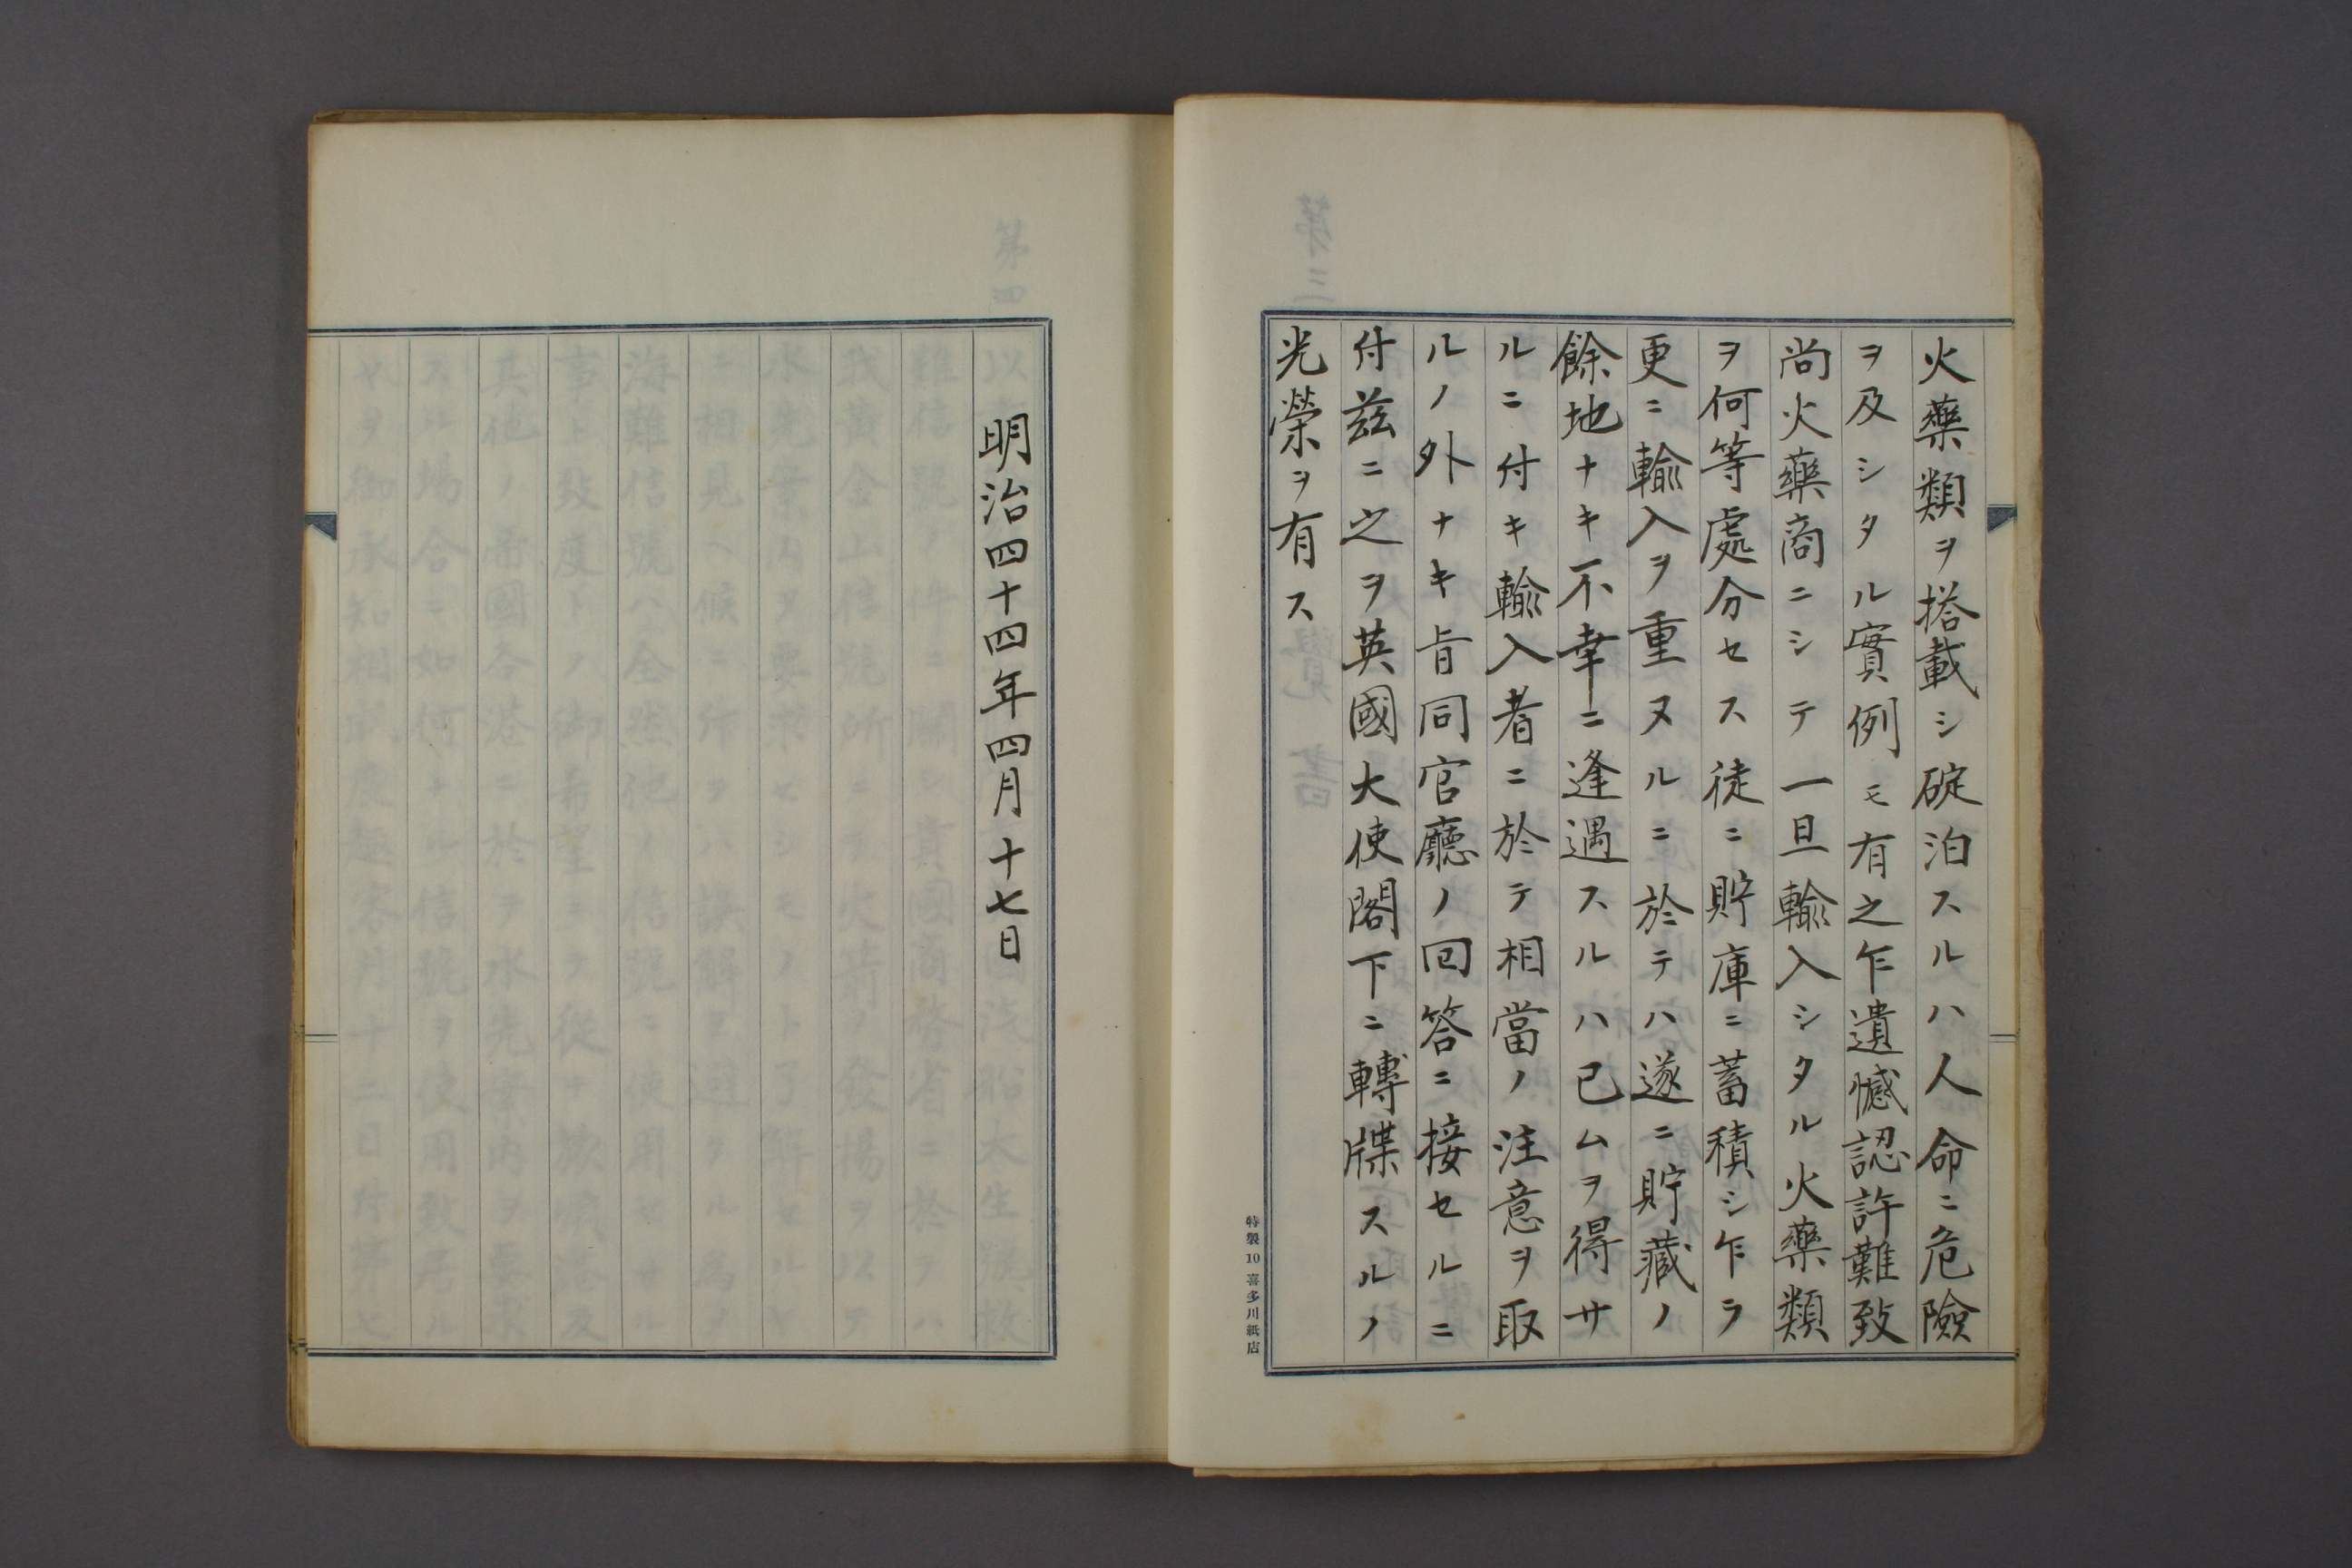 火藥類ヲ搭載シ碇泊スルハ人命ニ危險
ヲ及シタル實例モ有之乍遺憾認許難致
尚火藥商ニシテ一旦輸入シタル火藥類
ヲ何等處分セス徒ニ貯庫ニ蓄積シ乍ラ
更ニ輸入ヲ重ヌルニ於テハ遂ニ貯藏ノ
餘地ナキ不幸ニ逢遇スルハ已ムヲ得サ
ルニ付キ輸入者ニ於テ相當ノ注意ヲ取
ルノ外ナキ旨同官廳ノ回答ニ接セルニ
付玆ニ之ヲ英國大使閣下ニ轉牒スルノ
光榮ヲ有ス
特製10喜多川紙店
明治四十四年四月十七日